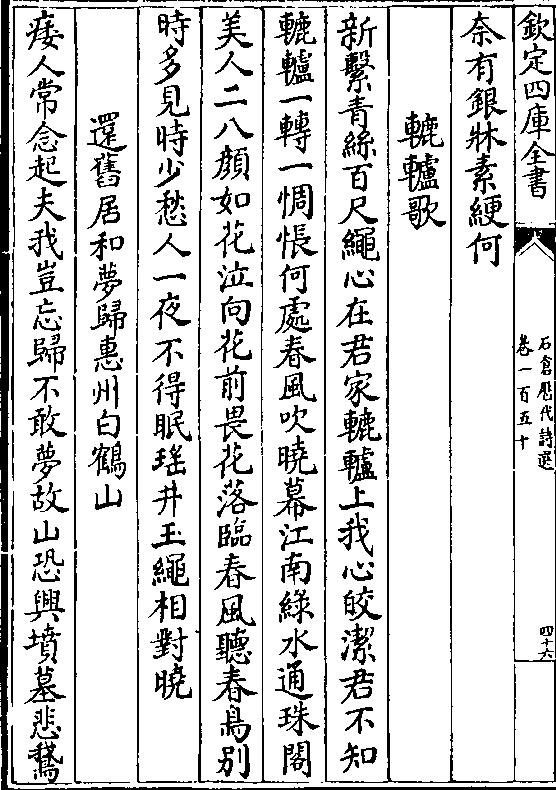 欽定四庫全書
石倉歷代詩選
卷一百五十
四十六
奈有銀牀素綆何
轆轤歌
新繫青絲百尺繩心在君家轆轤上我心皎潔君不知
轆轤一轉一惆悵何處春風吹曉幕江南綠水通珠閣
美人二八顔如花泣向花前畏花落臨春風聽春鳥别
時多見時少愁人一夜不得眠瑤井玉繩相對曉
還舊居和夢歸惠州白鶴山
痿人常念起夫我豈忘歸不敢夢故山恐興墳墓悲鵞